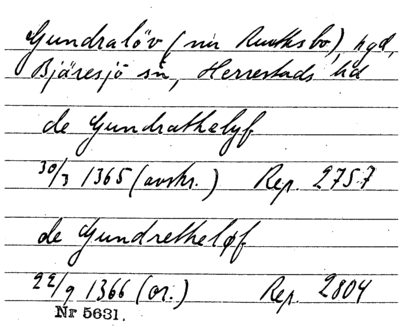 Gundralöv (nu Ruuthsbo), hgd,
Bjäresjö sn, Herrestads hd
de Gundrathelyf
30/3 1365 (avskr.) Rep. 2757
de Gundretheløf
22/9 1366 (or.) Rep. 2804
Nr 5631.